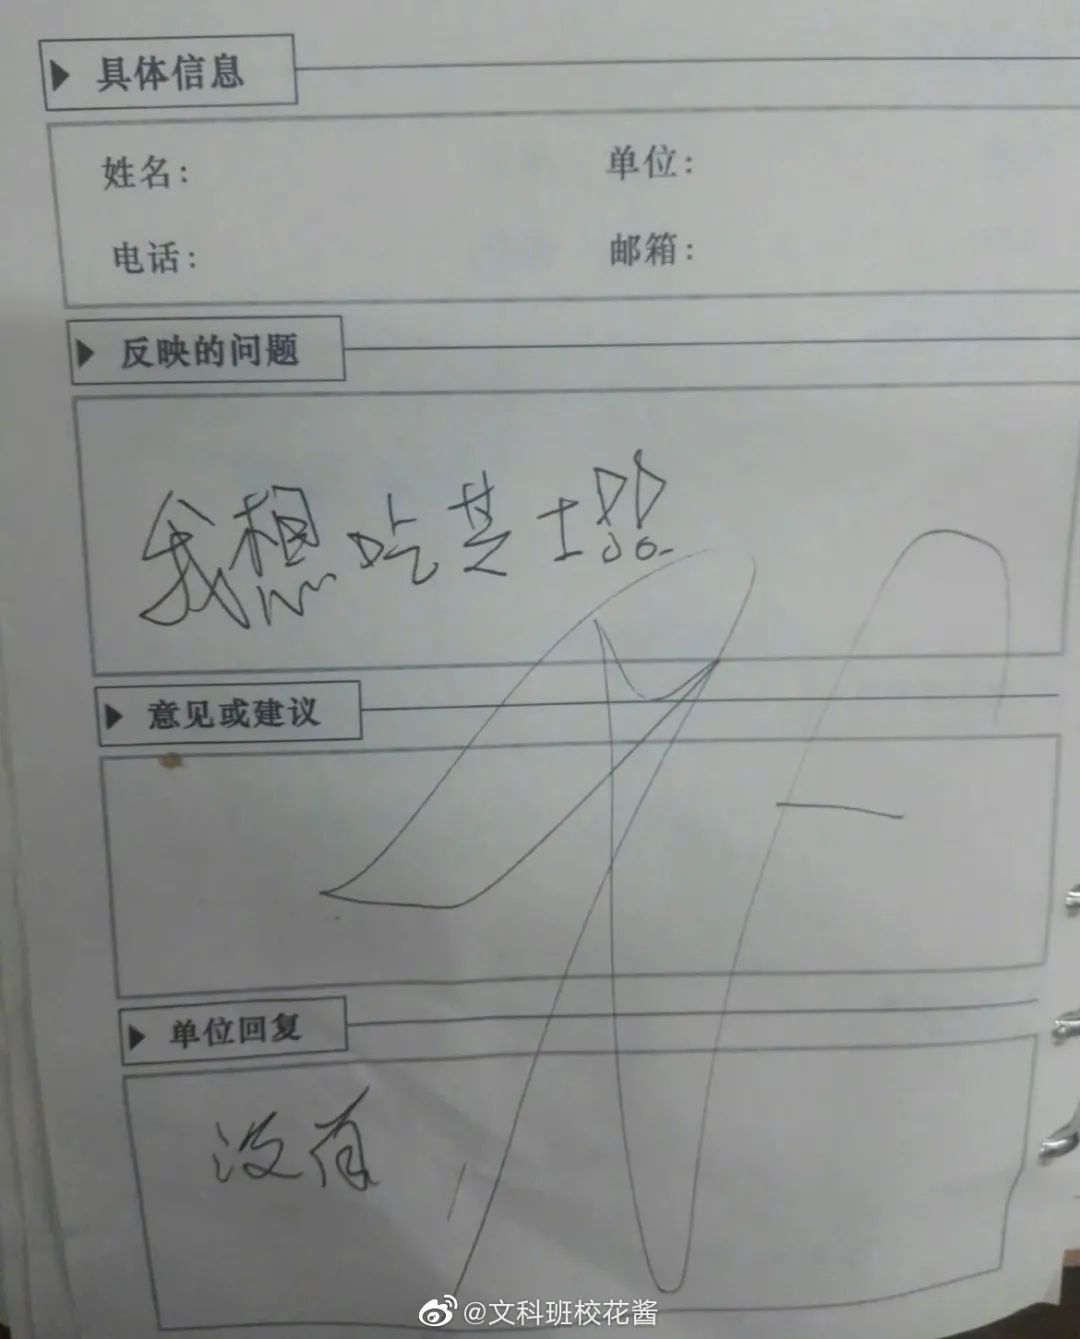 具体信息
姓名: 单位:
电话: 邮箱:
反映的问题
我想吃芝士!!
意见或建议
单位回复
没有
@文科班校花酱